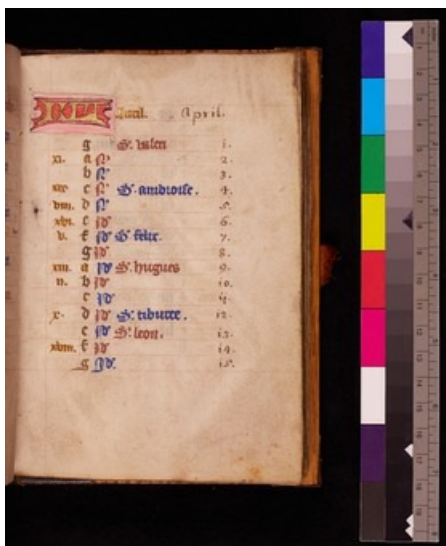 KL Auril. April.
g S. valeri 1.
xi. a N 2.
b N 3.
xix c N S. ambroise. 4.
viii. d N 5.
xvi. e id 6.
v. f id S. felix. 7.
g id 8.
xiii. a id S. hugues 9.
ii. b id 10.
c id 11.
x. d id S. tiburce. 12.
e id S. leon. 13.
xviii. f id 14.
g id. 15.